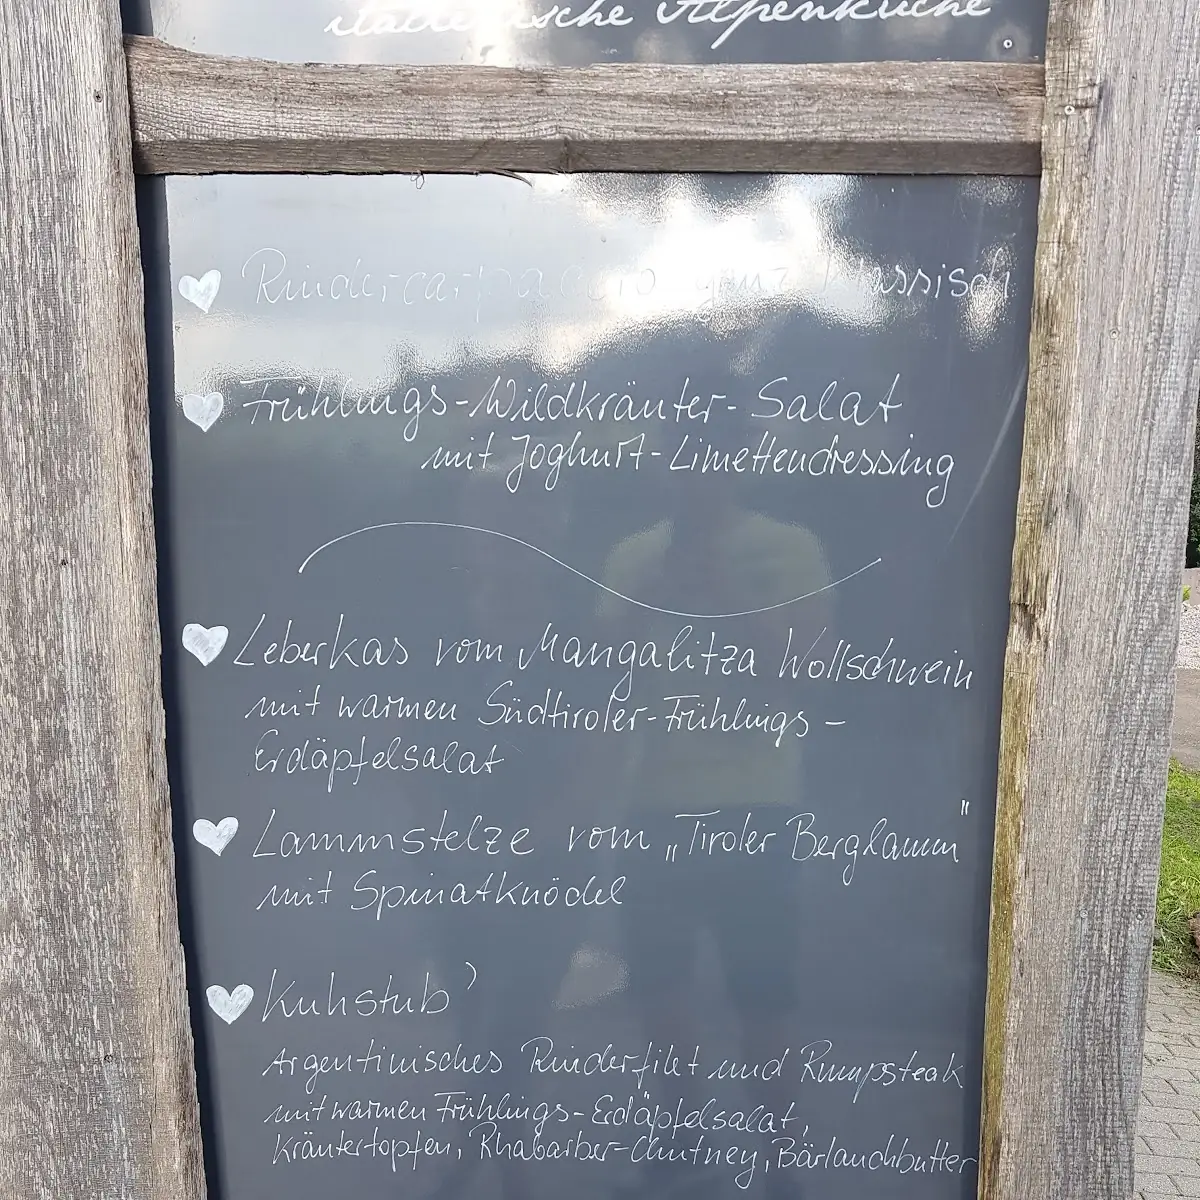 italienische Alpenküche
Rindercarpaccio ganz klassisch
Frühlings-Wildkräuter-Salat
mit Joghurt-Limettendressing
Leberkas vom Mangalitza Wollschwein
mit warmen Südtiroler-Frühlings-
Erdäpfelsalat
Lammstelze vom „Tiroler Berglamm"
mit Spinatknödel
Kuhstub'
Argentinisches Rinderfilet und Rumpsteak
mit warmen Frühlings-Erdäpfelsalat,
Kräutertopfen, Rhabarber-Chutney, Bärlauchbutter